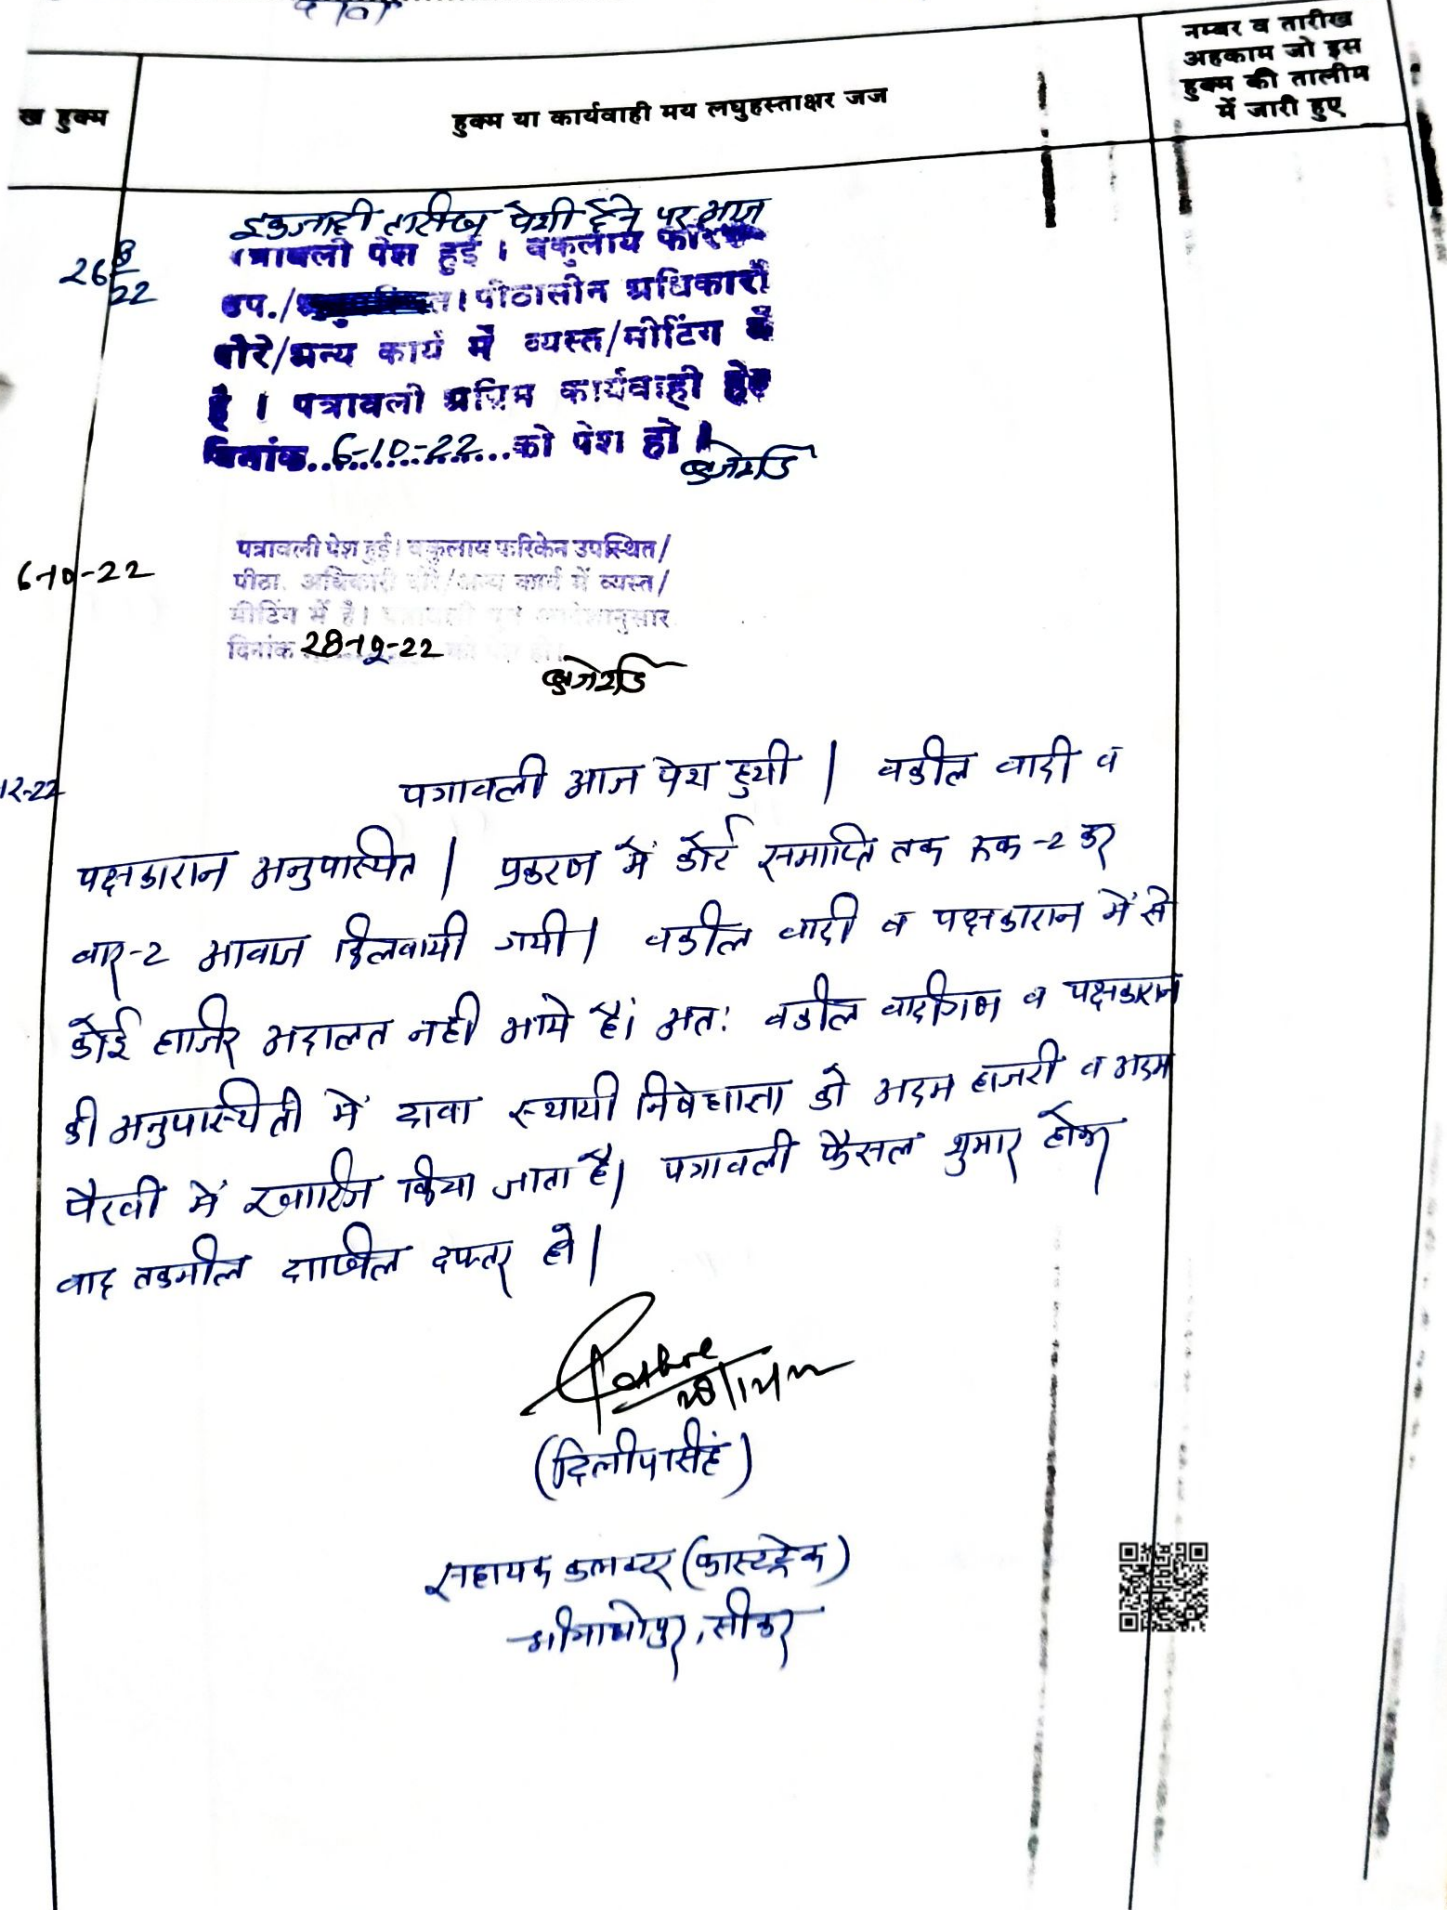 ख हुक्म
हुक्म या कार्यवाही मय लघुहस्ताक्षर जज
नम्बर व तारीख
अहकाम जो इस
हुक्म की तालीम
में जारी हुए
तारीख पेशी देने पर आज
26 8/22
पत्रावली पेश हुई । वकुलाय
उप./ । पीठासीन अधिकारी
दौरे/अन्य कार्य में व्यस्त/मीटिंग में
है । पत्रावली अग्रिम कार्यवाही हेतु
दिनांक..6-10-22...को पेश हो ।
6-10-22
पत्रावली पेश हुई। वकुलाय फरिकेन उपस्थित/
पीठा. अधिकारी दौरे/अन्य कार्य में व्यस्त/
मीटिंग में है। पत्रावली पूर्व आदेशानुसार
दिनांक 28-12-22 को पेश हो।
12-22
पत्रावली आज पेश हुयी | वकील वादी व
पक्षकारान अनुपस्थित | प्रकरण में कोर्ट समाप्ति तक रूक-2 कर
बार-2 आवाज दिलवायी गयी | वकील वादी व पक्षकारान में से
कोई हाजिर अदालत नही आये हैं। अतः वकील वादीगण व पक्षकारान
की अनुपस्थिती में दावा स्थायी निषेधाज्ञा को अदम हाजरी व अदम
पैरवी में खारिज किया जाता है| पत्रावली फैसल शुमार होकर
बाद तकमील दाखिल दफ्तर हो |
(दिलीपसिंह)
सहायक कलक्टर (फास्टट्रेक)
श्रीमाधोपुर, सीकर